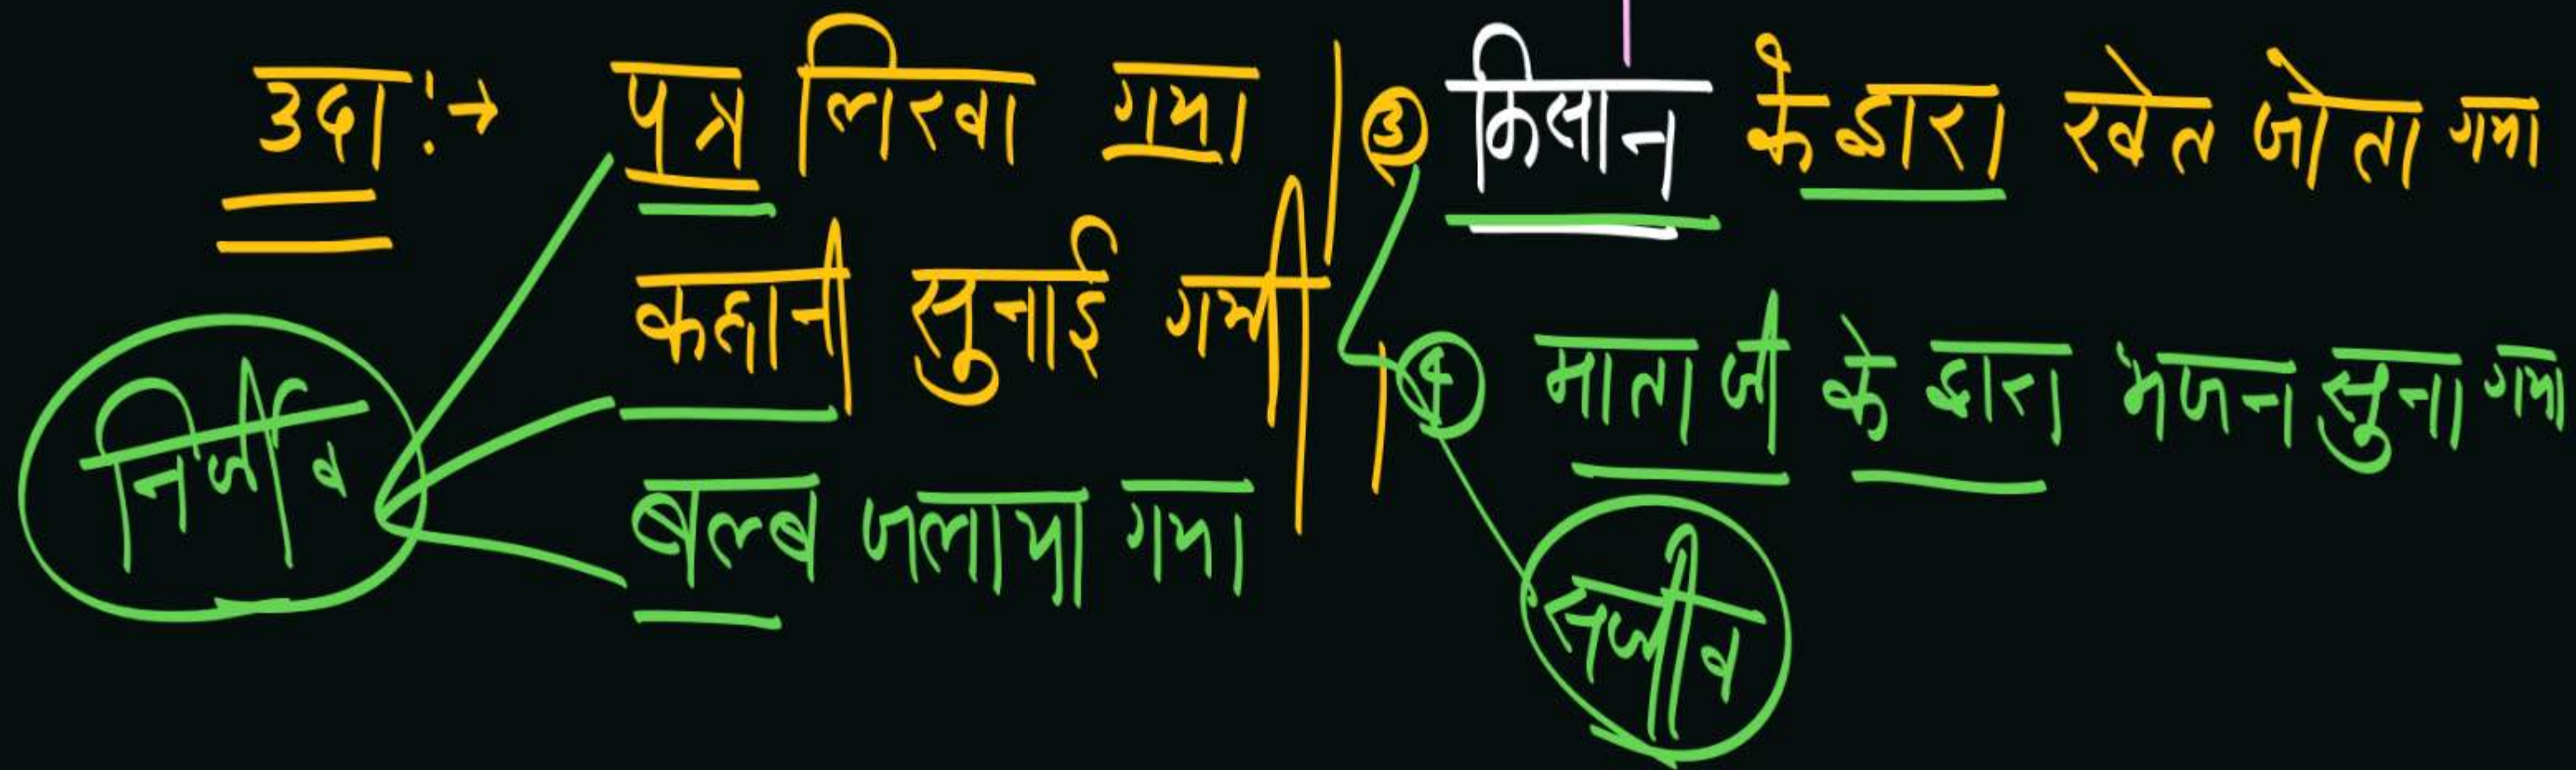 उदा :→ पत्र लिखा गया
कहानी सुनाई गयी
बल्ब जलाया गया
निर्जीव
③ किसान के द्वारा खेत जोता गया
④ माता जी के द्वारा भजन सुना गया
सजीव